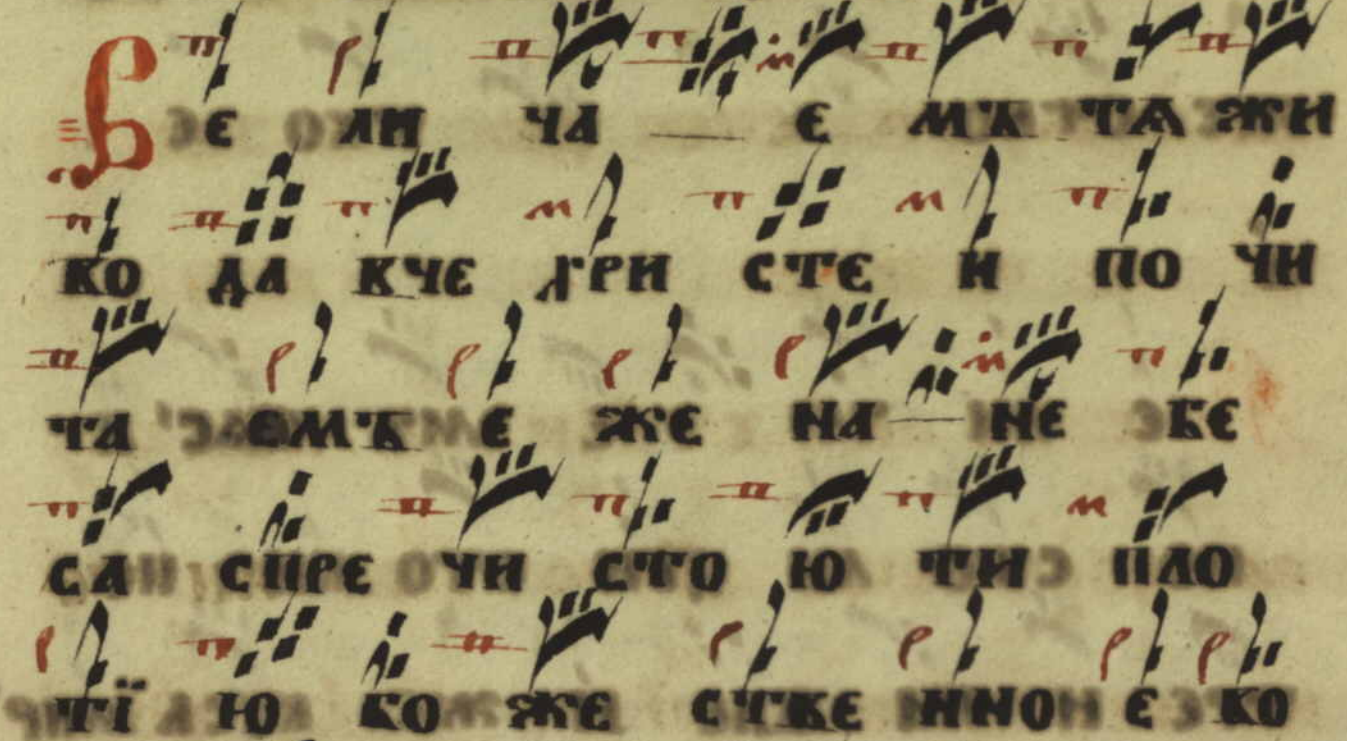 Вє ли ча є мъ тѧ жи
ко да вчє хри стє и по чи
та ємъ є жє на нє бє
са спрє чи сто ю ти пло
тї ю бо жє ствє нно є во